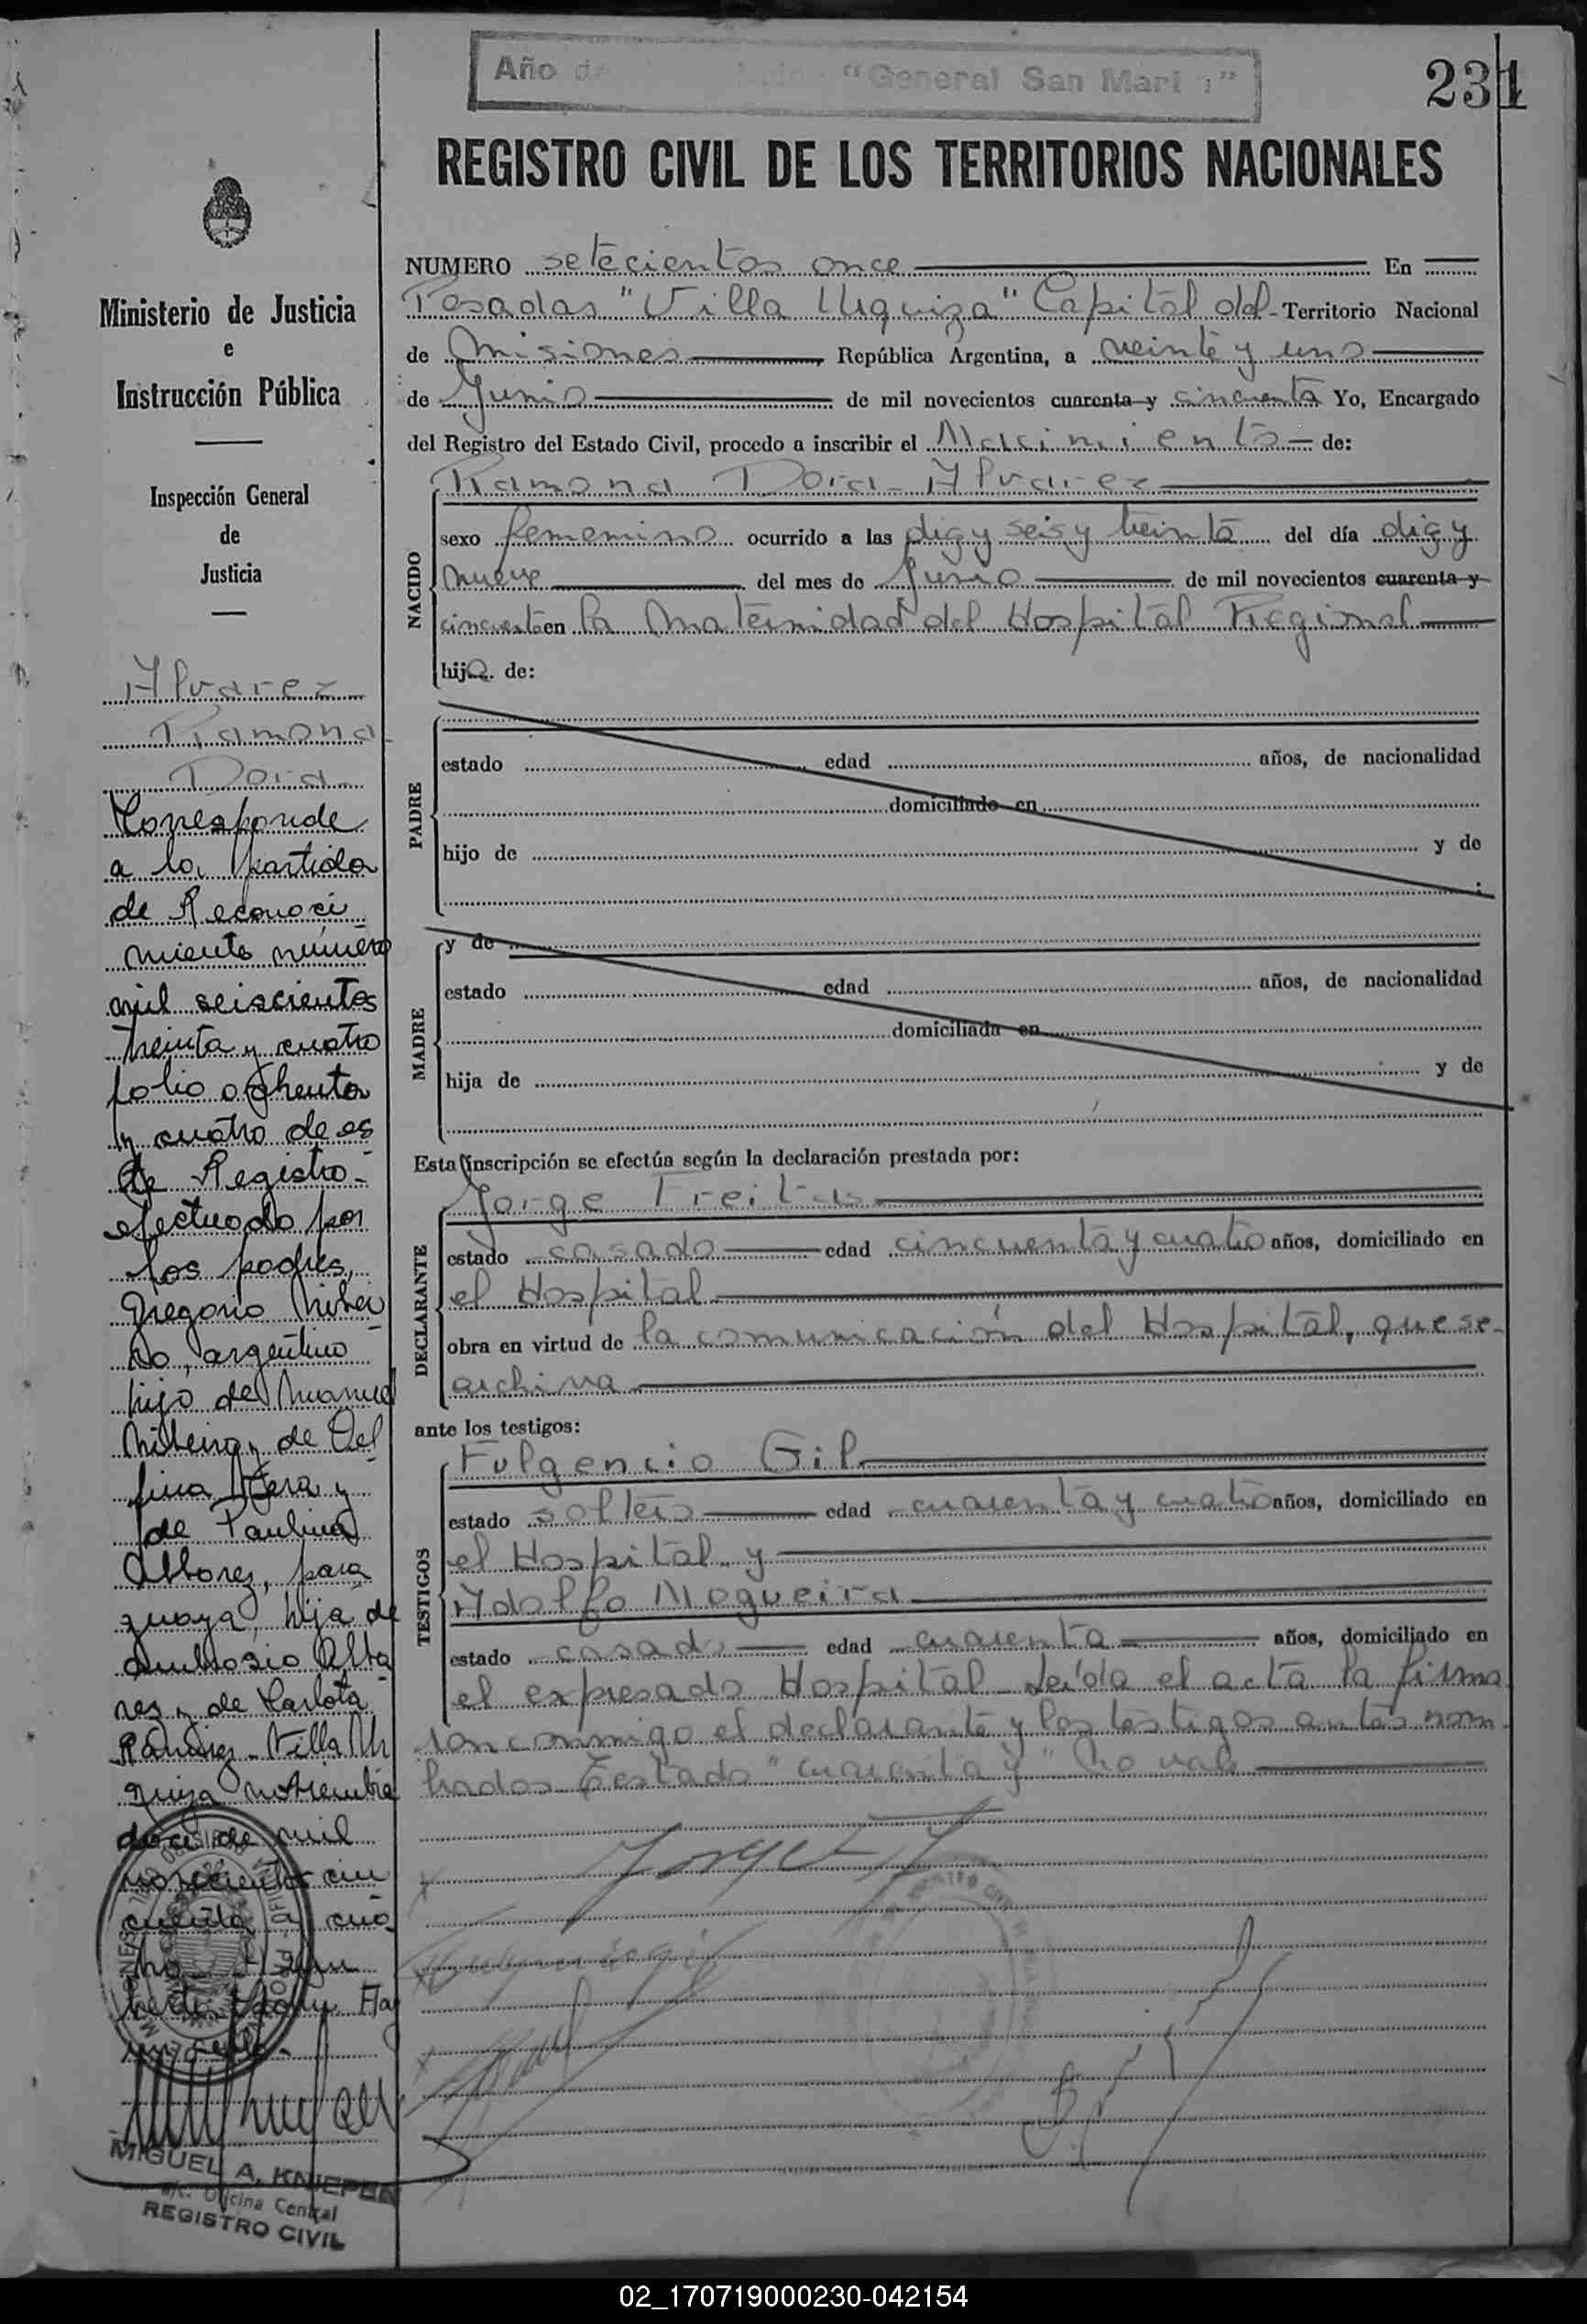 Año de "General San Mart n"
231
REGISTRO CIVIL DE LOS TERRITORIOS NACIONALES
Ministerio de Justicia
e
Instrucción Pública
Inspección General
de
Justicia
Alvarez
Ramona
Dora
Corresponde
a la partida
de Reconoci
miento número
mil seiscientos
treinta y cuatro
folio ochenta
y cuatro de es
te Registro
efectuado por
los padres,
Gregorio Ribei
ro, argentino
hijo de Manuel
Ribeiro y de Del
fina Vera y
de Paulina
Alvarez, para
guaya, hija de
Ambrosio Alva
rez y de Carlota
Ramirez. Villa Ur
quiza noviembre
doce de mil
novecientos cin
cuenta y cua
tro.
Hay
un sello.
MIGUEL A. KNIEPEN
a/c. Oficina Central
REGISTRO CIVIL
NUMERO setecientos once En
Posadas "Villa Urquiza" Capital del Territorio Nacional
de Misiones República Argentina, a veinte y uno
de Junio de mil novecientos cuarenta y cincuenta Yo, Encargado
del Registro del Estado Civil, procedo a inscribir el Nacimiento de:
NACIDO
Ramona Dora Alvarez
sexo femenino ocurrido a las diez y seis y treinta del día diez y
nueve del mes de Junio de mil novecientos cuarenta y
cincuenta en la Maternidad del Hospital Regional
hija de:
PADRE
estado edad años, de nacionalidad
domiciliado en
hijo de y de
MADRE
y de
estado edad años, de nacionalidad
domiciliada en
hija de y de
Esta inscripción se efectúa según la declaración prestada por:
DECLARANTE
Jorge Freitas
estado casado edad cincuenta y cuatro años, domiciliado en
el Hospital
obra en virtud de la comunicación del Hospital, que se
archiva
ante los testigos:
TESTIGOS
Fulgencio Gil
estado soltero edad cuarenta y cuatro años, domiciliado en
el Hospital y
Adolfo Nogueira
estado casado edad cuarenta años, domiciliado en
el expresado Hospital Leída el acta la firma
ron conmigo el declarante y los testigos antes nom
brados Testado "cuarenta y" no vale
02_170719000230-042154